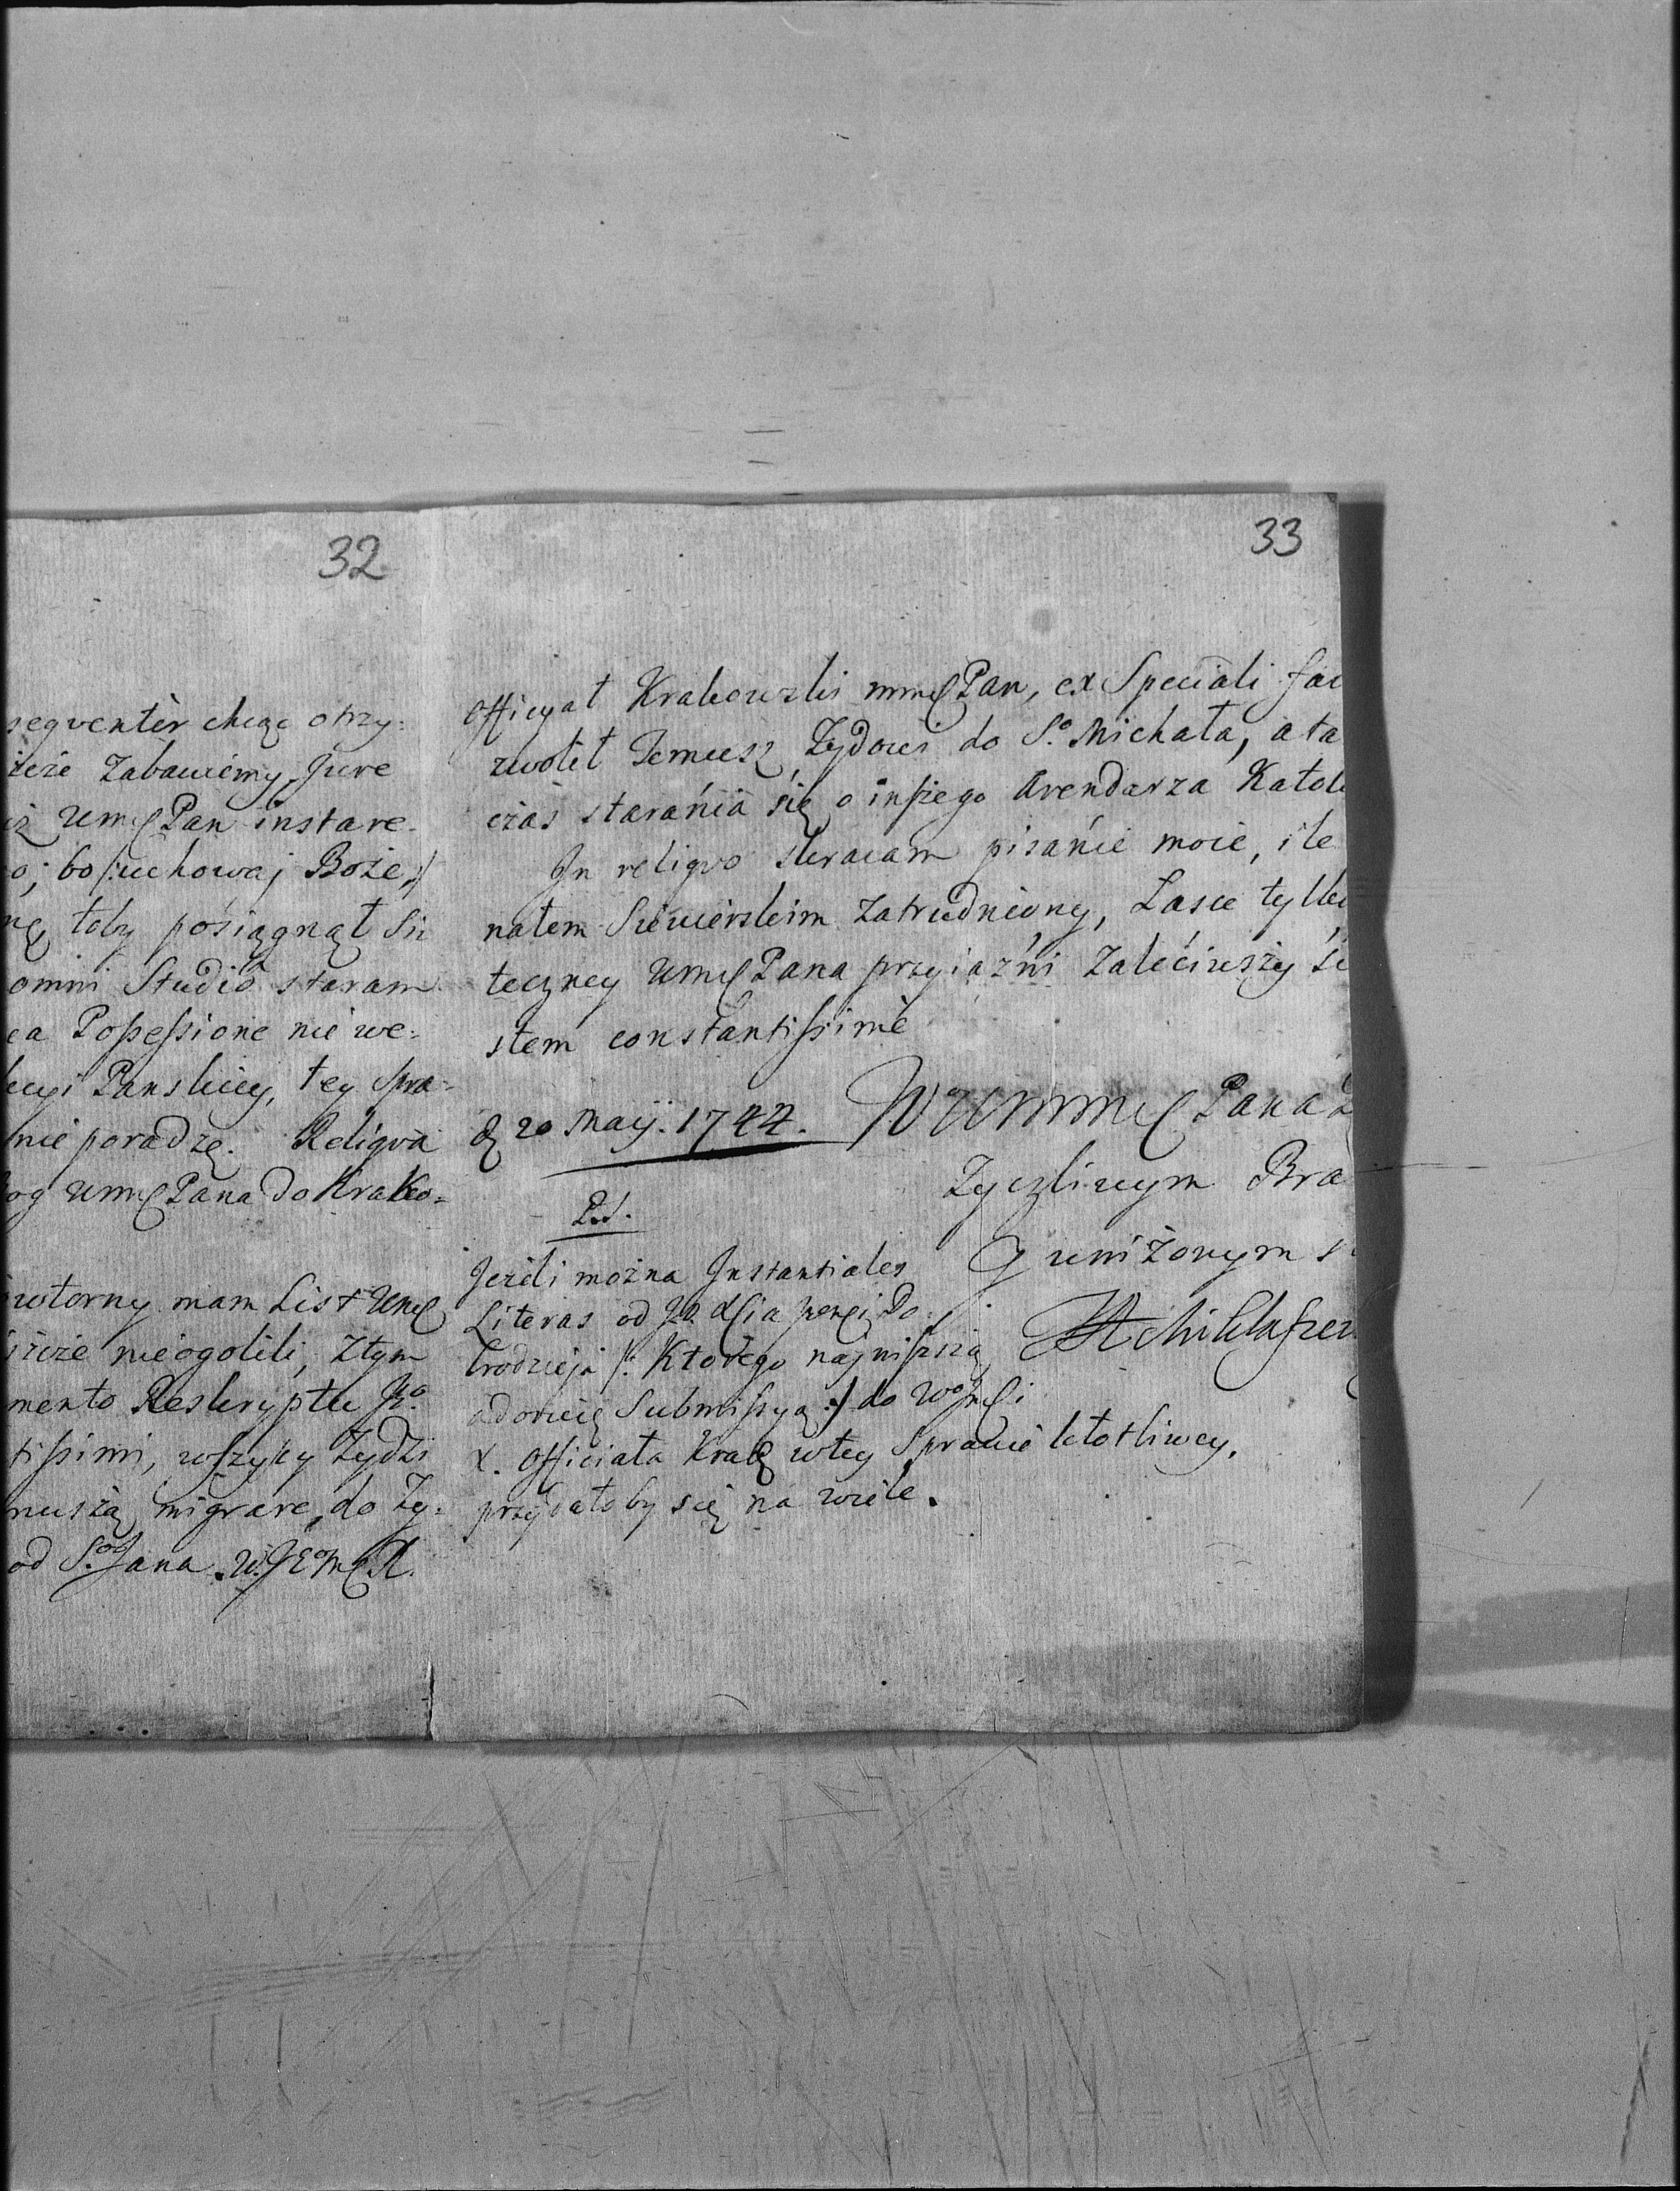 32
seqventèr chcąc otrzy:
zabawiemy Jure
UmćPan instare
bo/:uchowaj Boże:/
toby posiągnął
omni Studio staram
Possessione nie we:
Panskiey, tey Spra:
nie poradzę. Religva
UmćPana do Krako:
mam List Umć
nieogolili, Ztym
mento Reskryptu
tissimi, wszyscy Żydzi
muszą migrare, do Ży:
od S. Jana.
33
Officyał Krakowski mmćPan, ex Speciali
zwolił Temusz Żydowi do So. Michała, a ta
czas starania się o inszego Arendarza Katol
In religvo skracam pisanie moie, ile
natem Siewierskim Zatrudniony, Łasce tylk
teczney UmćPana przyiaźni Zaleciwszy
stem constantissimè
20 Maij. 1744. WUmmmć Pana
Życzliwym Bra
P.S.
Jeżeli można Instantiales Y uniżonym s
Literas od Do
brodzieja /: Ktorego najniższą
adoruię Submissyą :/ do
X. Officiała Krak wtey Sprawie kłotliwey,
przydałoby się na wiele.